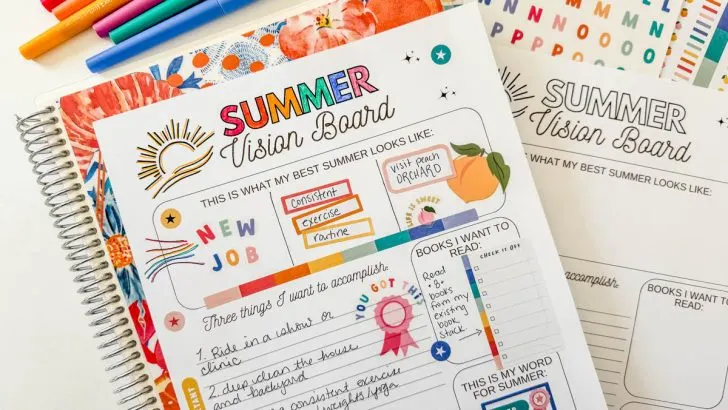 SUMMER
Vision Board
THIS IS WHAT MY BEST SUMMER LOOKS LIKE:
NEW
JOB
consistent
exercise
routine
visit peach
ORCHARD
LIFE IS SWEET
Three things I want to accomplish.
1. Ride in a show or
clinic
2. deep clean the house
and backyard
consistent exercise
weights/yoga
YOU GOT THIS
BOOKS I WANT TO
READ:
CHECK IT OFF
Read
8
books
from my
existing
book
stack
THIS IS MY WORD
FOR SUMMER:
SUMMER
Vision Board
THIS IS WHAT MY BEST SUMMER LOOKS LIKE:
accomplish.
BOOKS I WANT TO
READ: